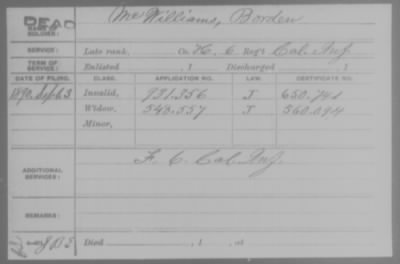 DEAD McWilliams, Borden
NAME OF SOLDIER:
SERVICE: Late rank, Co. H. 6 Reg't Cal. Inf.
TERM OF SERVICE: Enlisted , 1 Discharged , 1
DATE OF FILING. CLASS. APPLICATION NO. LAW. CERTIFICATE NO.
1890 Sept 3 Invalid, 931.356 J 650.741
Widow, 543.557 J 560.094
Minor,
ADDITIONAL SERVICES: F. 6. Cal. Inf.
REMARKS:
Died , 1 , at